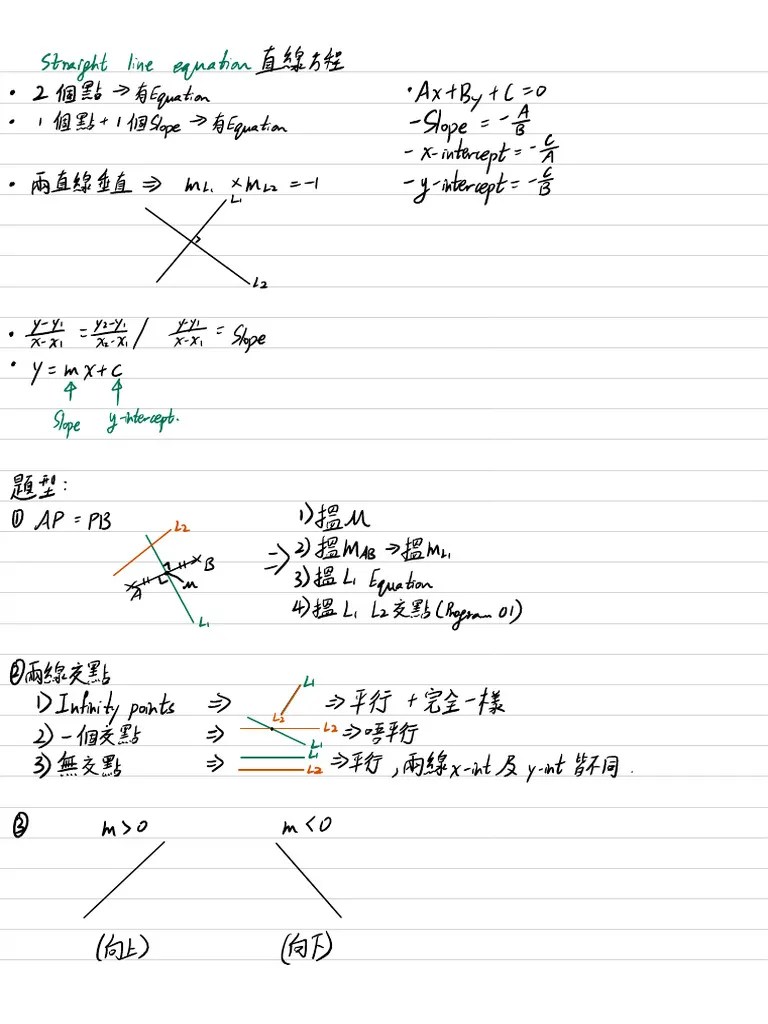 Straight line equation 直線方程
• 2個點 → 有Equation
• 1個點+1個Slope → 有Equation
• 兩直線垂直 ⇒ mL1 × mL2 = -1
L1
L2
• Ax+By+C=0
- Slope = -A/B
- x-intercept = -C/A
- y-intercept = -C/B
• y-y1/x-x1 = y2-y1/x2-x1 / y-y1/x-x1 = Slope
• y = mx+c
Slope y-intercept.
題型:
① AP = PB
L2
B
A
M
L1
⇒
1) 搵M
2) 搵mAB → 搵mL1
3) 搵L1 Equation
4) 搵L1 L2交點(Program 01)
②兩線交點
1) Infinity points ⇒ L1 L2 ⇒ 平行 + 完全一樣
2) 一個交點 ⇒ L2 L1 ⇒ 唔平行
3) 無交點 ⇒ L1 L2 ⇒ 平行, 兩線x-int及y-int皆不同.
③ m>0 m<0
(向上) (向下)